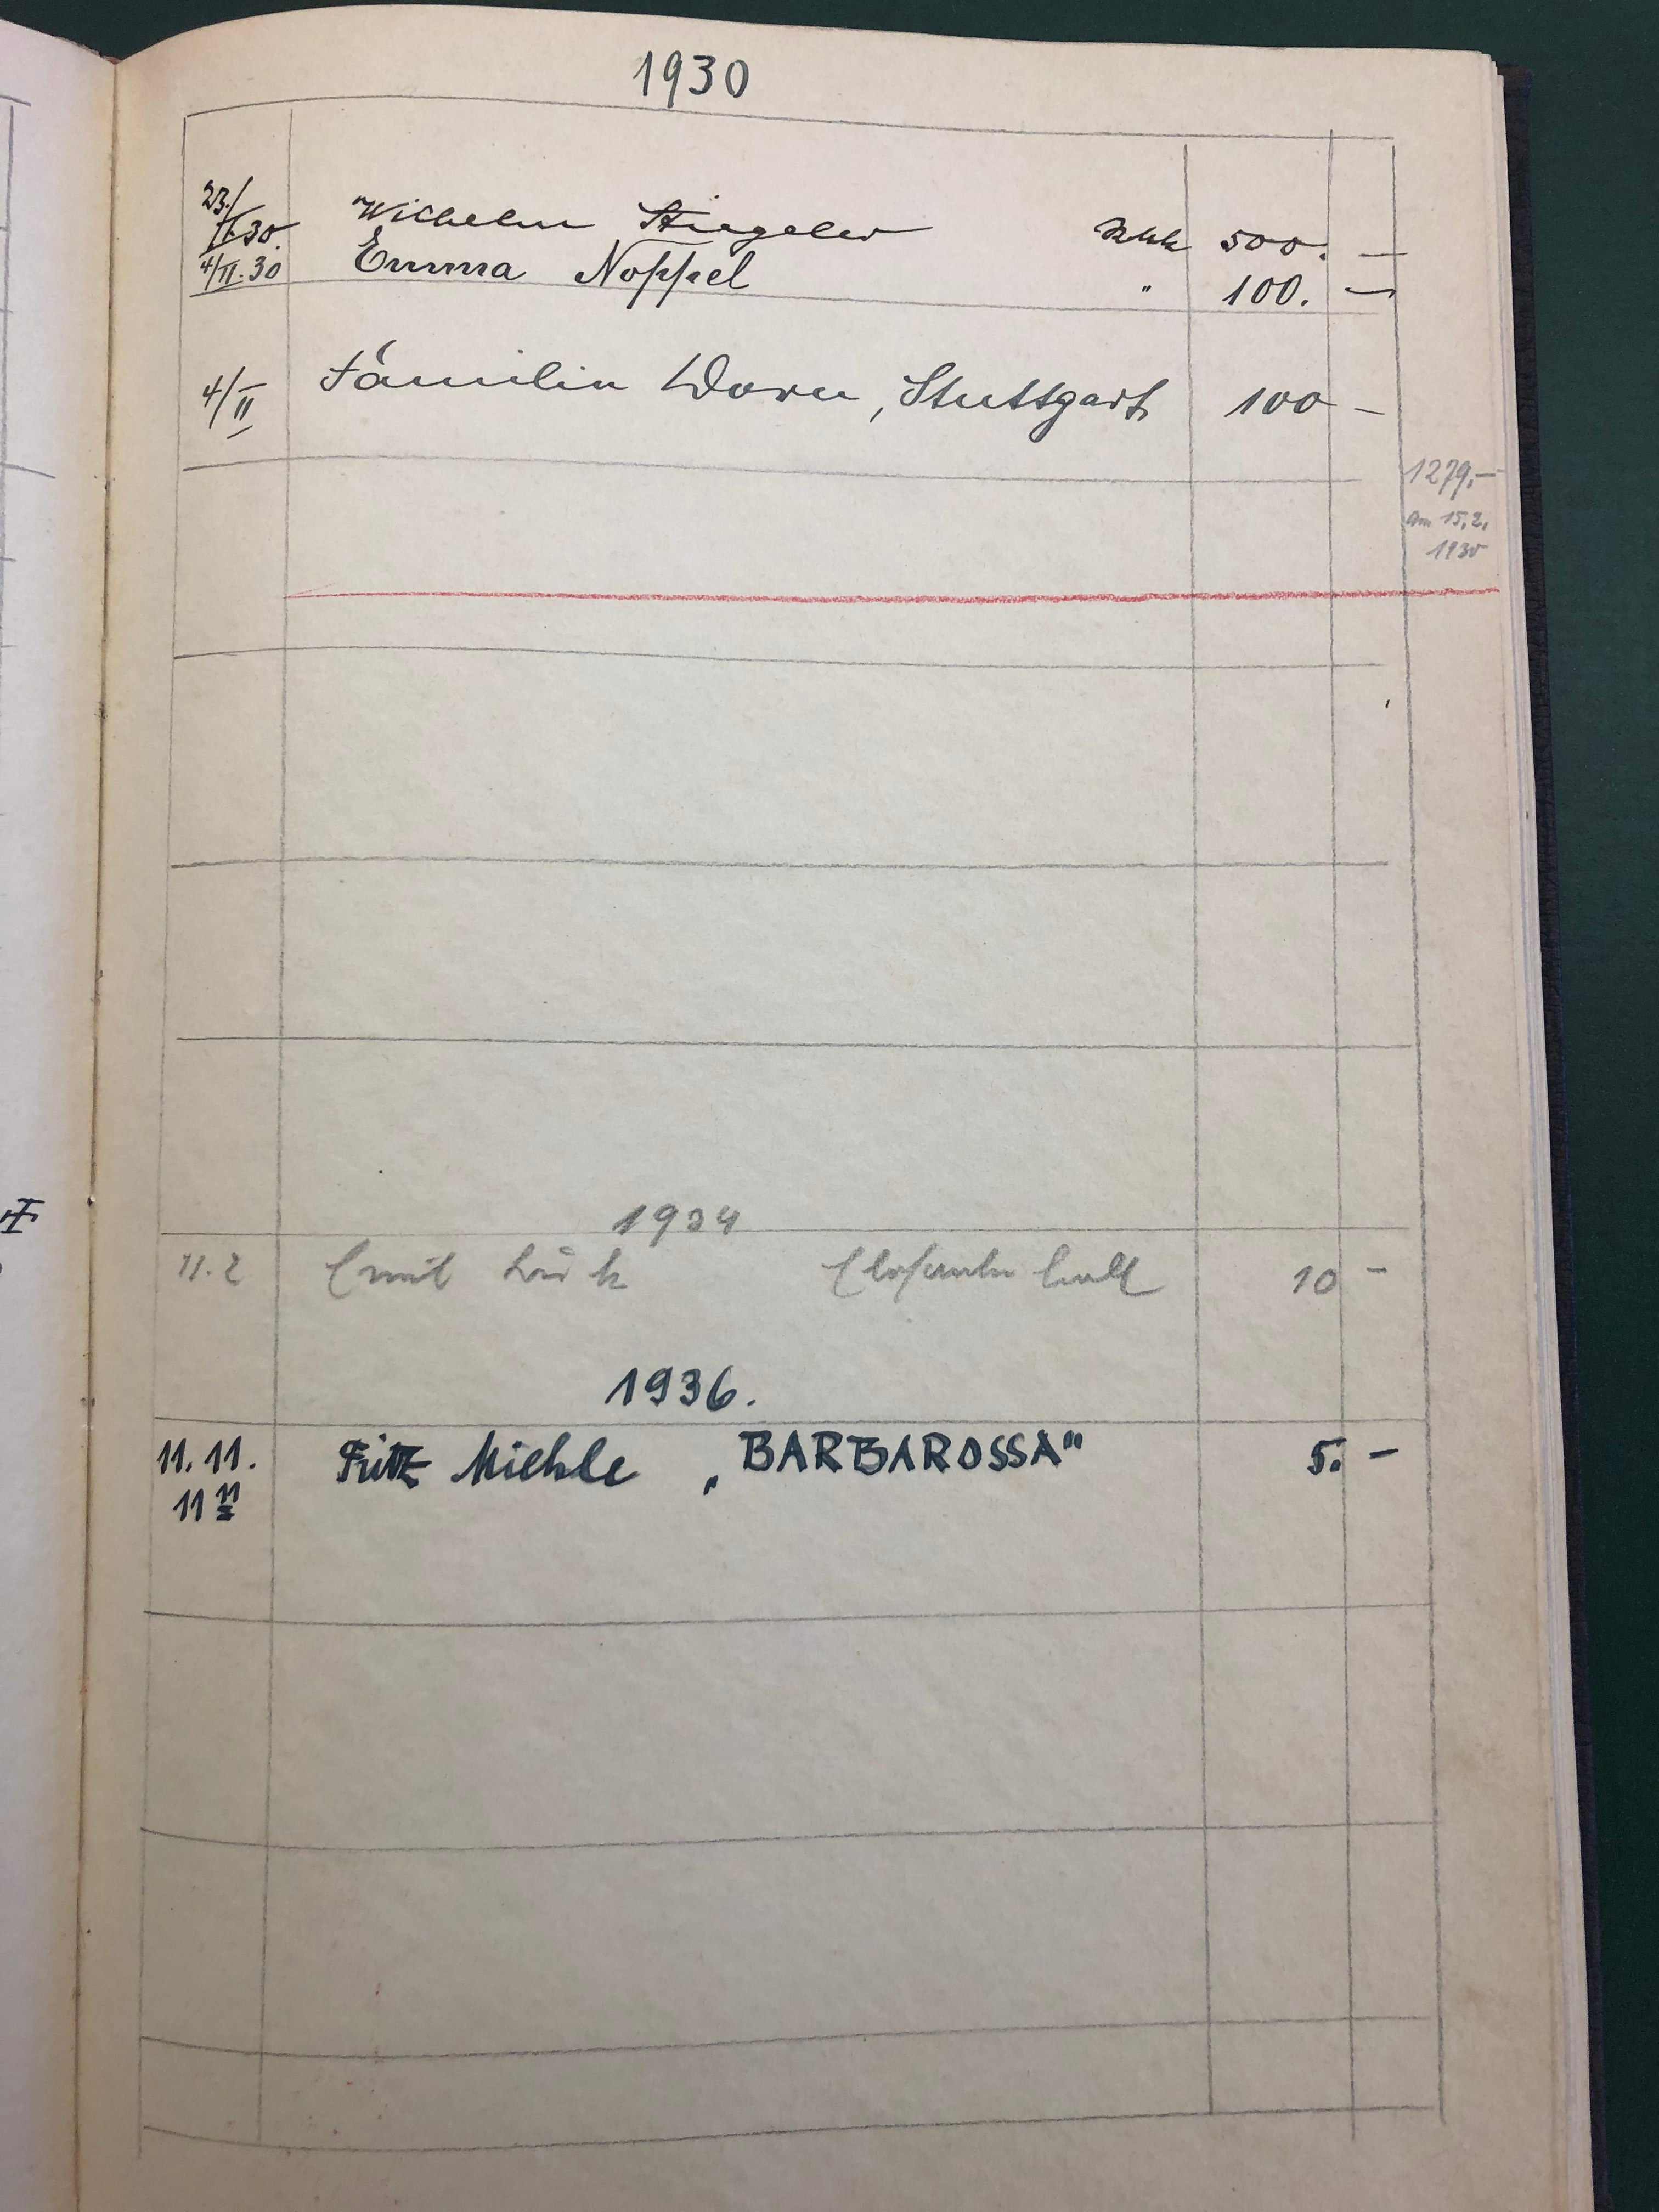 1930
23./II.30. Wilhelm Stiegeler 500. —
4/II.30 Emma Noppel " 100. —
4/II Familie Dorn, Stuttgart 100 —
1279.—
am 15.2.
1930
1934
11.2 Emil 10 —
1936.
11.11. Fritz Miehle „BARBAROSSA" 5. —
11 11